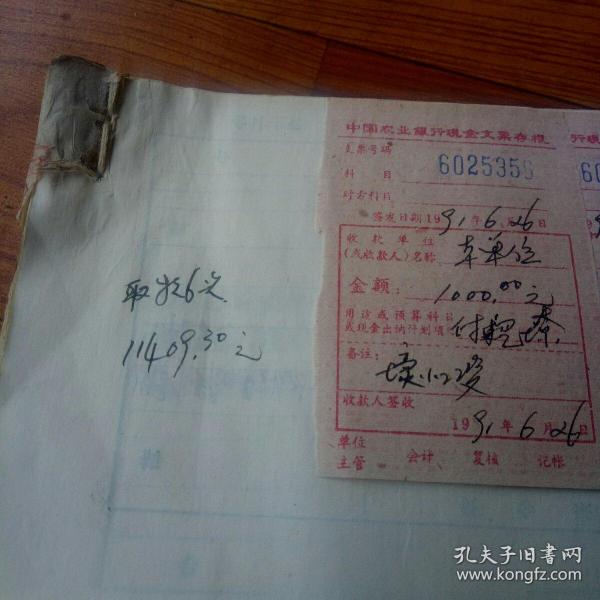 中国农业银行现金支票存根
支票号码
6025356
科 目
对方科目
签发日期1991年6月26日
收款单位
(或收款人)名称
本单位
金额:
1000.00元
用途或预算科目
或现金出纳计划项
备注:
收款人签收
1991年6月26日
单位
主管 会计 复核 记帐
行现
60
11409.30元
孔夫子旧书网
www.kongfz.com